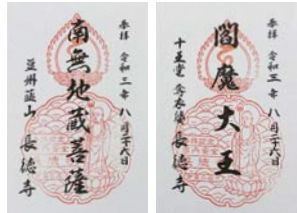 奉拝 令和三年 八月二十八日
南無地蔵菩薩
豆州韮山 長徳寺
奉拝 令和三年 八月二十八日
閻魔大王
十王堂 奪衣婆 長徳寺